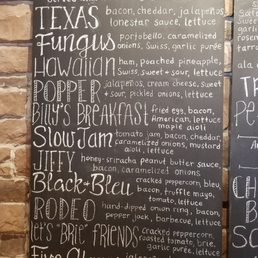 TEXAS bacon, cheddar, jalapeños,
lonestar sauce, lettuce
Fungus portobello, caramelized
onions, Swiss, garlic purée
Hawaiian ham, poached pineapple,
Swiss, sweet + sour, lettuce
POPPER jalapeños, cream cheese, sweet
+ sour, pickled onions, lettuce
Billy's BREAKFAST fried egg, bacon,
American, lettuce
maple aioli
SlowJam tomato jam, bacon, cheddar,
caramelized onions, mustard
aioli, lettuce
JIFFY honey-sriracha peanut butter sauce,
bacon, caramelized onions
Black+Bleu cracked peppercorn, bleu,
bacon, truffle mayo,
tomato, lettuce
RODEO hand-dipped onion ring, bacon,
pepper jack, barbecue, lettuce
LET'S "BRIE" FRIENDS cracked peppercorn,
roasted tomato, brie,
garlic purée, lettuce